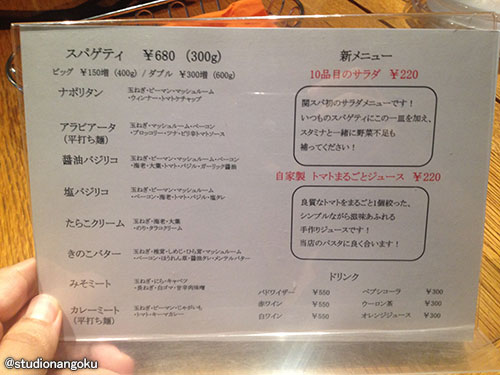 スパゲティ ￥680 (300g)
ビッグ ￥150増 (400g) / ダブル ￥300増 (600g)
ナポリタン
玉ねぎ・ピーマン・マッシュルーム
・ウィンナー・トマトケチャップ
アラビアータ
(平打ち麺)
玉ねぎ・マッシュルーム・ベーコン
・ブロッコリー・ツナ・ピリ辛トマトソース
醤油バジリコ
玉ねぎ・ピーマン・マッシュルーム・ベーコン・
・海老・大葉・トマト・バジル・ガーリック醤油
塩バジリコ
玉ねぎ・ピーマン・マッシュルーム
・ベーコン・海老・トマト・バジル・塩タレ
たらこクリーム
玉ねぎ・海老・大葉
・のり・タラコクリーム
きのこバター
玉ねぎ・椎茸・しめじ・ひら茸・マッシュルーム
・ベーコン・ほうれん草・醤油タレ・メンチルバター
みそミート
玉ねぎ・にら・キャベツ
・長ねぎ・白ゴマ・甘辛肉味噌
カレーミート
(平打ち麺)
玉ねぎ・ピーマン・じゃがいも
・トマト・キーマカレー
新メニュー
10品目のサラダ ￥220
関スパ初のサラダメニューです！
いつものスパゲティにこの一皿を加え、
スタミナと一緒に野菜不足も
補ってください！
自家製 トマトまるごとジュース ￥220
良質なトマトをまるごと1個絞った、
シンプルながら滋味あふれる
手作りジュースです！
当店のパスタに良く合います！
ドリンク
バドワイザー ￥550 ペプシコーラ ￥300
赤ワイン ￥550 ウーロン茶 ￥300
白ワイン ￥550 オレンジジュース ￥300
@studionangoku